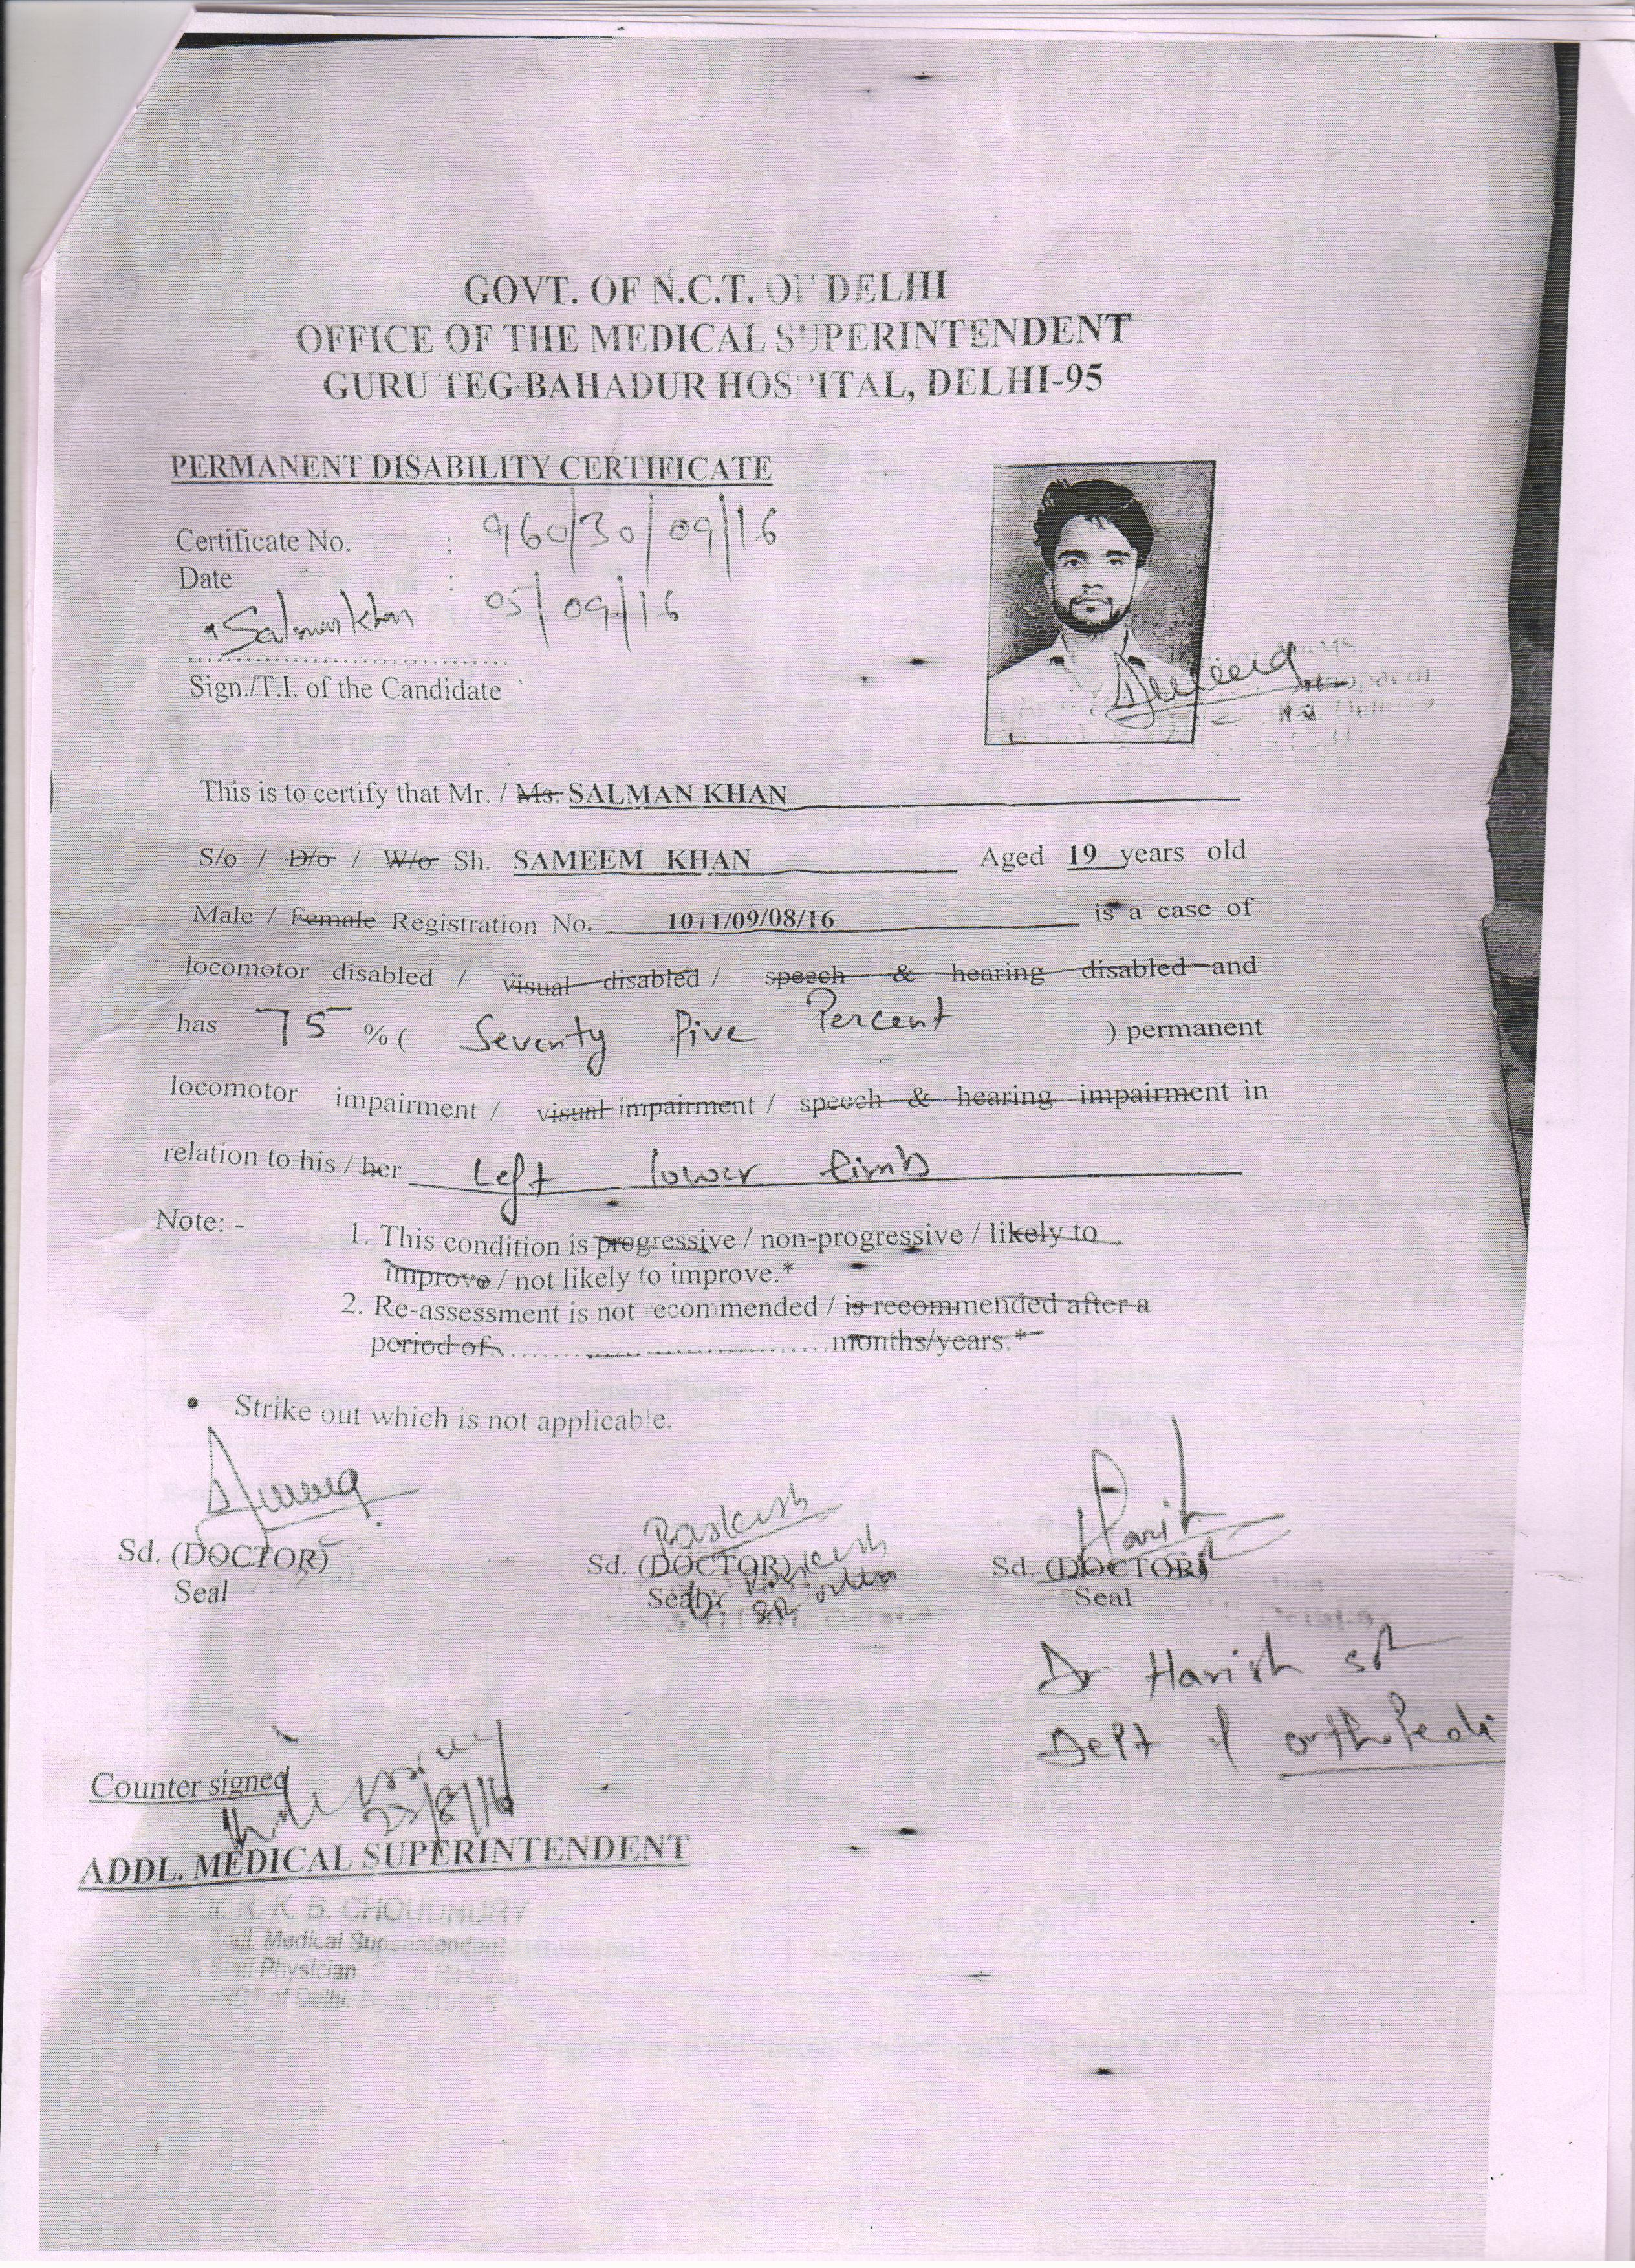 GOVT. OF N.C.T. OF DELHI
OFFICE OF THE MEDICAL SUPERINTENDENT
GURU TEG BAHADUR HOSPITAL, DELHI-95
PERMANENT DISABILITY CERTIFICATE
Certificate No. : 960/30/09/16
Date : 05/09/16
Salman khan
Sign./T.I. of the Candidate
This is to certify that Mr. / Ms. SALMAN KHAN
S/o / D/o / W/o Sh. SAMEEM KHAN Aged 19 years old
Male / Female Registration No. 1011/09/08/16 is a case of
locomotor disabled / visual disabled / speech & hearing disabled and
has 75 % ( Seventy Five Percent ) permanent
locomotor impairment / visual impairment / speech & hearing impairment in
relation to his / her Left lower limb
Note: - 1. This condition is progressive / non-progressive / likely to
improve / not likely to improve.*
2. Re-assessment is not recommended / is recommended after a
period of..............................months/years.*
• Strike out which is not applicable.
Rakesh
Harish
Sd. (DOCTOR) Sd. (DOCTOR) Sd. (DOCTOR)
Seal Seal Seal
Dr Rakesh
SR ortho
Dr Harish SR
Dept of orthopedi
Counter signed
23/8/16
ADDL. MEDICAL SUPERINTENDENT
Dr. R. K. B. CHOUDHURY
Addl. Medical Superintendent
& Staff Physician, G.T.B Hospital
of Delhi,